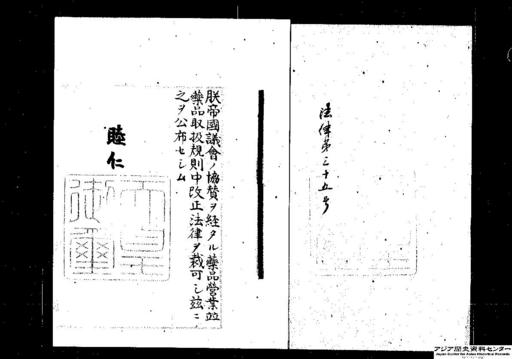 法律第三十五号
朕帝國議會ノ協賛ヲ経タル藥品營業竝
藥品取扱規則中改正法律ヲ裁可シ茲ニ
之ヲ公布セシム
睦仁
天皇
御璽
アジア歴史資料センター
Japan Center for Asian Historical Records